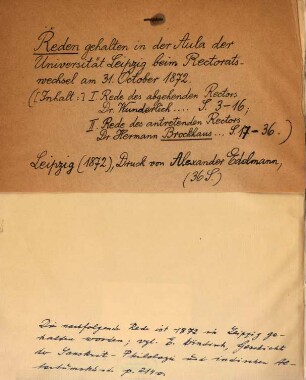 Reden gehalten in der Aula der
Universität Leipzig beim Rectorats-
wechsel am 31. October 1872.
([Inhalt:] I. Rede des abgehenden Rectors
Dr. Wunderlich .... S. 3-16;
II. Rede des antretenden Rectors
Dr. Hermann Brockhaus ... S. 17-36.)
Leipzig (1872), Druck von Alexander Edelmann,
(36 S.)
Die nachfolgende Rede ist 1872 in Leipzig ge-
halten worden; vgl. E. Windisch, Geschichte
der Sanskrit-Philologie und indischen Al-
tertumskunde p. 211.